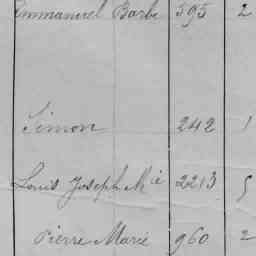 Emmanuel Barbe 595 2
Simon 242 1
Louis Joseph M ie 2213 5
Pierre Marie 960 2